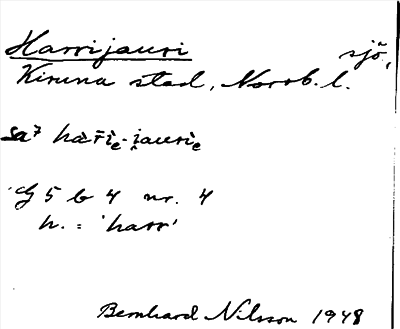 Harrijauri sjö,
Kiruna stad, Norrb. l.
sa⁷ hàr̄i̯e-i̯auri̯e
G 5 b 4 nr. 4
h. = 'harr'
Bernhard Nilsson 1948